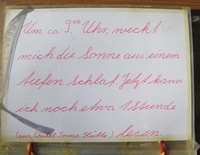 Um ca. 9:00 Uhr, weckt
mich die Sonne aus einem
tiefen Schlaf. Jetzt kann
ich noch etwa 1 Stunde
lesen